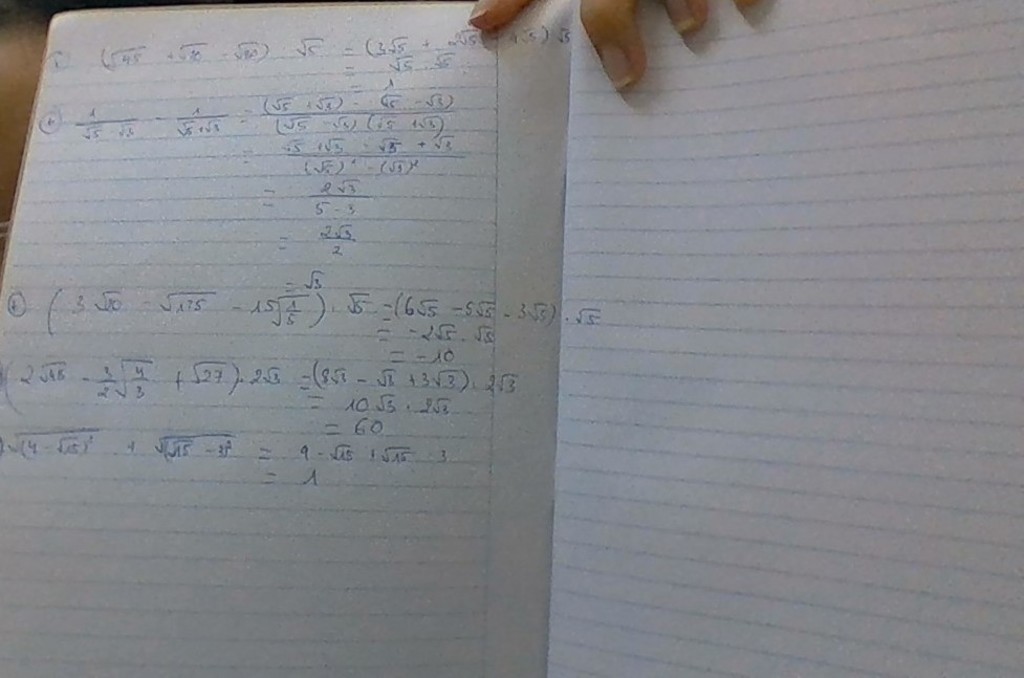 (√45 + √20 - √80) √5 = (3√5 + 2√5 - 4√5) √5
= √5 . √5
1/(√5 - √3) - 1/(√5 + √3) = ((√5 + √3) - (√5 - √3))/((√5 - √3)(√5 + √3))
= (√5 + √3 - √5 + √3)/((√5)² - (√3)²)
= 2√3/(5 - 3)
= 2√3/2
= √3
(3√20 - √125 - 15√(1/5)) . √5 = (6√5 - 5√5 - 3√5) . √5
= -2√5 . √5
= -10
(2√48 - 3/2√(4/3) + √27) . 2√3 = (8√3 - √3 + 3√3) . 2√3
= 10√3 . 2√3
= 60
√(4 - √15)² + √(√15 - 3)² = 4 - √15 + √15 - 3
= 1